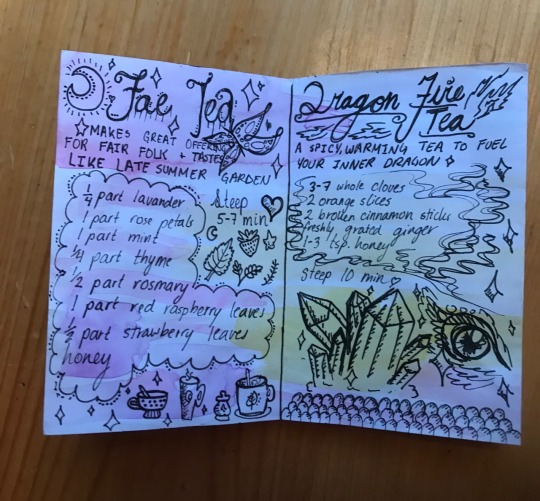 Fae Tea
MAKES GREAT OFFERING
FOR FAIR FOLK + TASTES
LIKE LATE SUMMER GARDEN
1/4 part lavander
1 part rose petals
1 part mint
1/4 part thyme
1/2 part rosmary
1 part red raspberry leaves
1/2 part strawberry leaves
honey
Steep
5-7 min
Dragon Fire
Tea
A SPICY, WARMING TEA TO FUEL
YOUR INNER DRAGON
3-7 whole cloves
2 orange slices
2 broken cinnamon sticks
freshly grated ginger
1-3 tsp honey
Steep 10 min